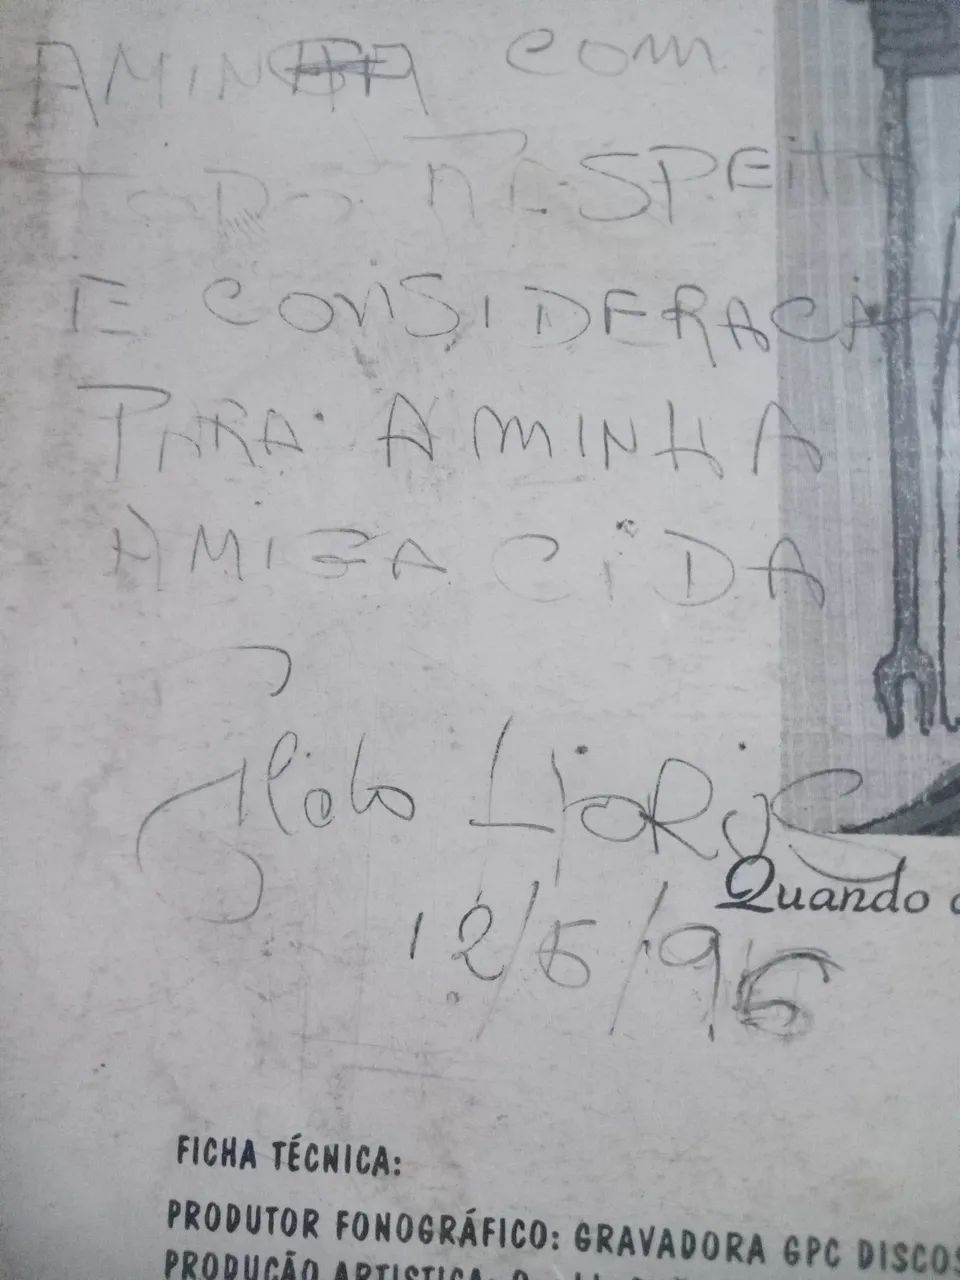 AMINHA COM
TODO RESPEITO
E CONSIDERAÇÃO
PARA A MINHA
AMIGA CIDA
12/6/96
Quando
FICHA TÉCNICA:
PRODUTOR FONOGRÁFICO: GRAVADORA GPC DISCOS
PRODUÇÃO ARTISTICA: